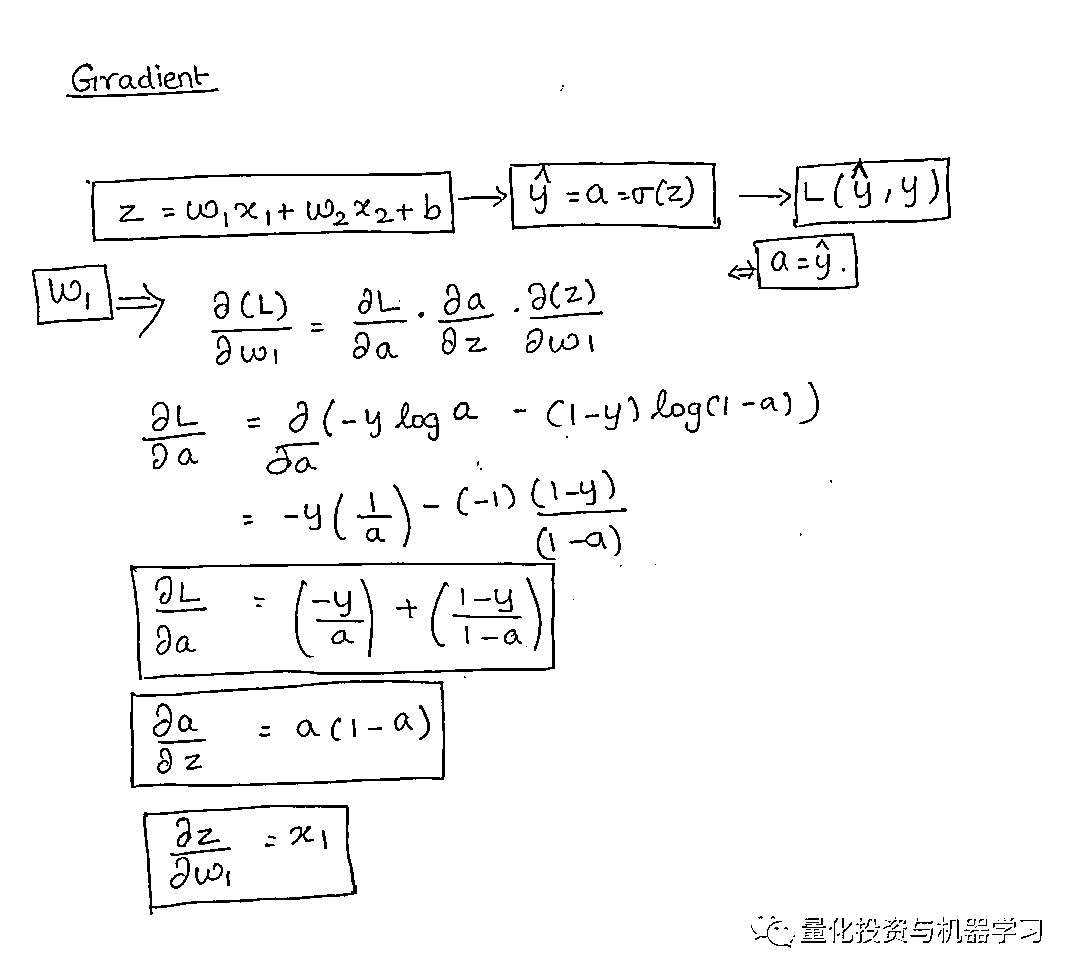 Gradient
z = w₁x₁ + w₂x₂ + b → ŷ = a = σ(z) → L(ŷ, y)
⇔ a = ŷ.
w₁ ⇒ ∂(L)/∂w₁ = ∂L/∂a · ∂a/∂z · ∂(z)/∂w₁
∂L/∂a = ∂/∂a (-y log a - (1-y) log(1-a))
= -y(1/a) - (-1) (1-y)/(1-a)
∂L/∂a = (-y/a) + (1-y/1-a)
∂a/∂z = a(1-a)
∂z/∂w₁ = x₁
量化投资与机器学习